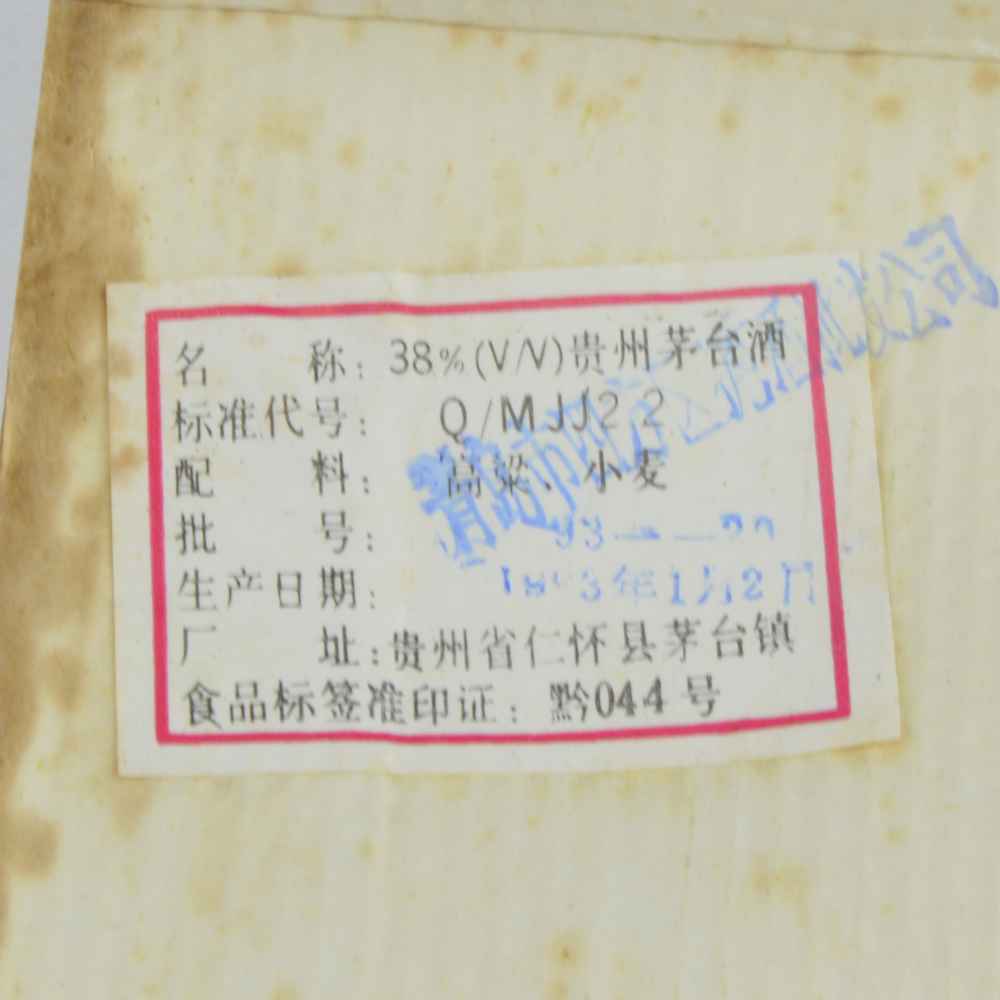 名 称：38%(V/V)贵州茅台酒
标准代号： Q/MJJ2 2
配 料： 高粱、小麦
批 号：
生产日期： 年1月2日
厂 址：贵州省仁怀县茅台镇
食品标签准印证：黔044号
公司